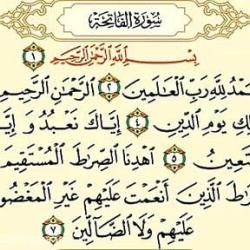 سُورَةُ الْفَاتِحَةِ
بِسْمِ اللَّهِ الرَّحْمَٰنِ الرَّحِيمِ ١
مْدُ لِلَّهِ رَبِّ الْعَٰلَمِينَ ٢ الرَّحْمَٰنِ الرَّحِيمِ
لِكِ يَوْمِ الدِّينِ ٤ إِيَّاكَ نَعْبُدُ وَإِيَّا
تَعِينُ ٥ اهْدِنَا الصِّرَٰطَ الْمُسْتَقِيمَ
رَٰطَ الَّذِينَ أَنْعَمْتَ عَلَيْهِمْ غَيْرِ الْمَغْضُو
عَلَيْهِمْ وَلَا الضَّالِّينَ ٧